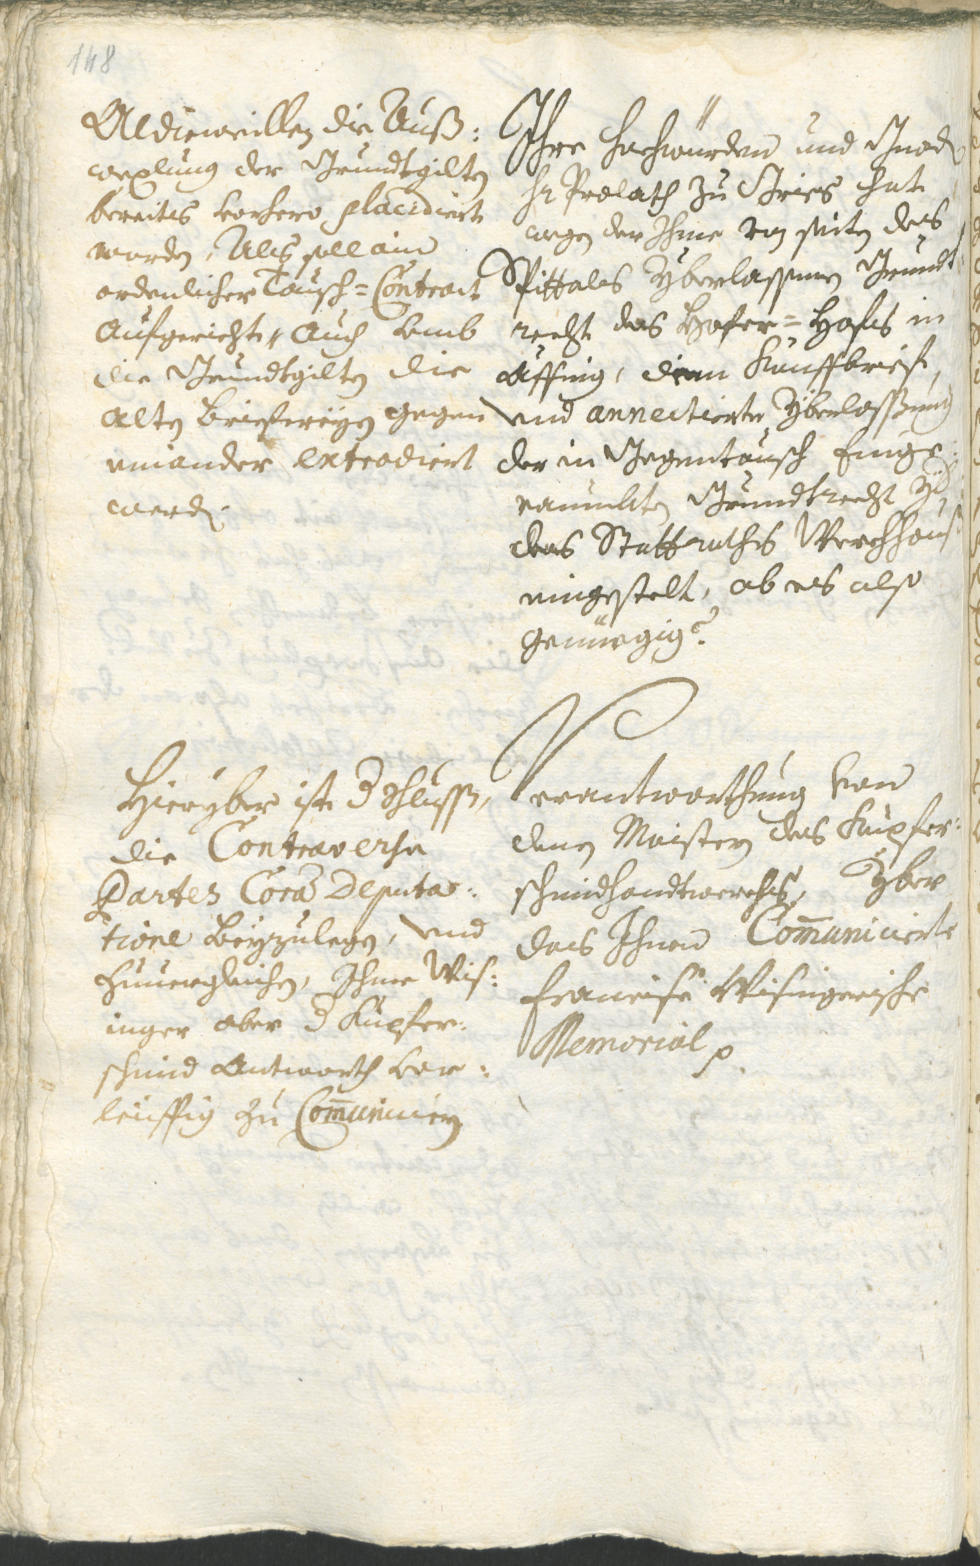 148
Aldieweillen die Auß:
wexlung der Grundtgilten
bereits vorhero placidiert
worden, Als soll ain
ordenlicher Tausch=Contract
Aufgerichtet, Auch umb
die Grundtgilten die
alten briefereyen gegen
einander extradiert
werden.
Ihre hochwürden und Gnaden
hr Prælath zu Gries hat
wegen der Ihme von seiten des
Spittales yberlassenen Grundt
recht des Hofer=Hofes in
Affing, den Kauffbrief,
und annectierte yberlassung
der in Gegentausch Einge:
raumbten Grundtrecht zu
des Stattraths Werchhaus
eingestelt, ob es also
genuegig?
Hieryber ist d schluss,
die Controverse
Partes Corã Deputa:
tione beyzulegen, und
zuvergleichen, Ihme Wis:
inger aber d Kupfer:
schmid Antworth vor:
leiffig zu Com̃unicieren
Verantworthung von
denen Maistern des Kupfer:
schmidhandtwerchs, yber
das Ihnen Com̃unicierte
Francisi Wisingerische
Memorial p.